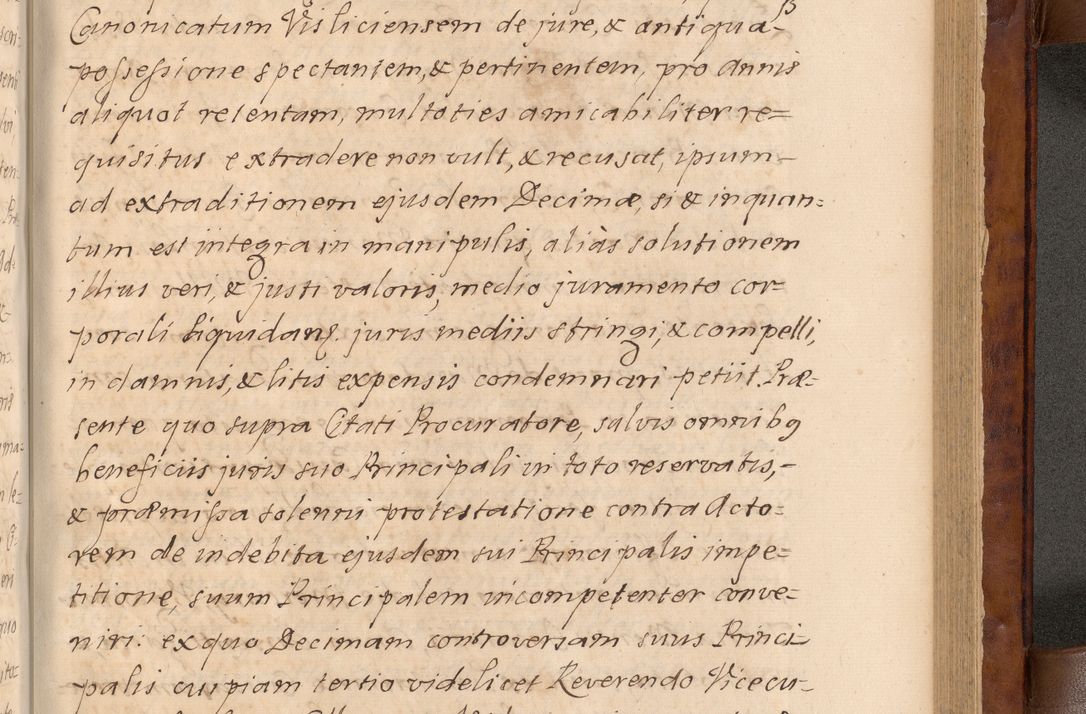 Canonicatum Visliciensem de jure, & antiqua-
possessione spectantem, & pertinentem, pro Annis
aliquot retentam, multoties amicabiliter re=
quisitus extradere non vult, & recusat, ipsum-
ad extraditionem ejusdem Decimæ, si & inquan=
tum est integra in manipulis, aliàs solutionem
illius veri, & justi valoris, medio juramento cor-
porali liquidanɖ. juris mediis stringi, & compelli,
in damnis, & litis expensis condemnari petiit. Præ-
sente quo supra Citati Procuratore, salvis omnibꝯ
beneficiis juris suo Principali in toto reservatis,-
& præmissa solenni protestatione contra Acto-
rem de indebita ejusdem sui Principalis impe=
titione, suum Principalem incompetenter conve=
niri: ex quo Decimam controversam suus Princi-
palis cuipiam tertio videlicet Reverendo Vicecu-